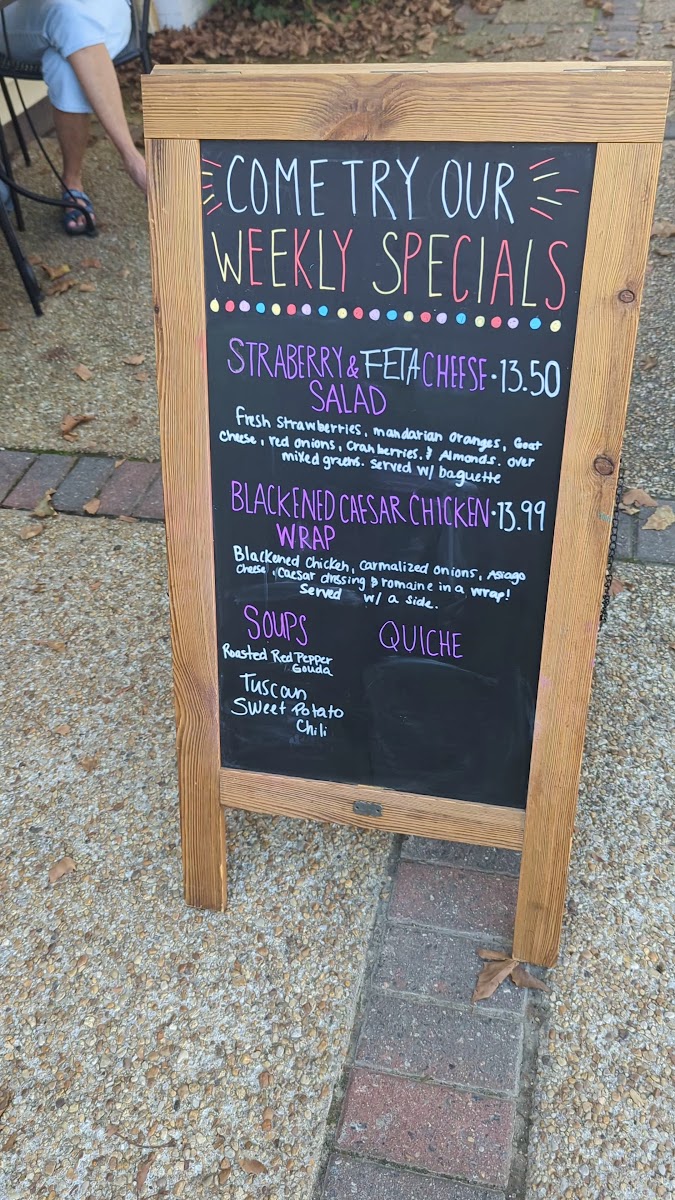 COME TRY OUR
WEEKLY SPECIALS
STRABERRY & FETA CHEESE • 13.50
SALAD
Fresh Strawberries, mandarian oranges, Goat
cheese, red onions, Cranberries. & Almonds. over
mixed greens. served w/ baguette
BLACKENED CAESAR CHICKEN • 13.99
WRAP
Blackened Chicken, carmalized onions, Asiago
Cheese, Caesar dressing & romaine in a wrap!
Served w/ a side.
SOUPS
Roasted Red Pepper
Gouda
Tuscan
Sweet Potato
Chili
QUICHE